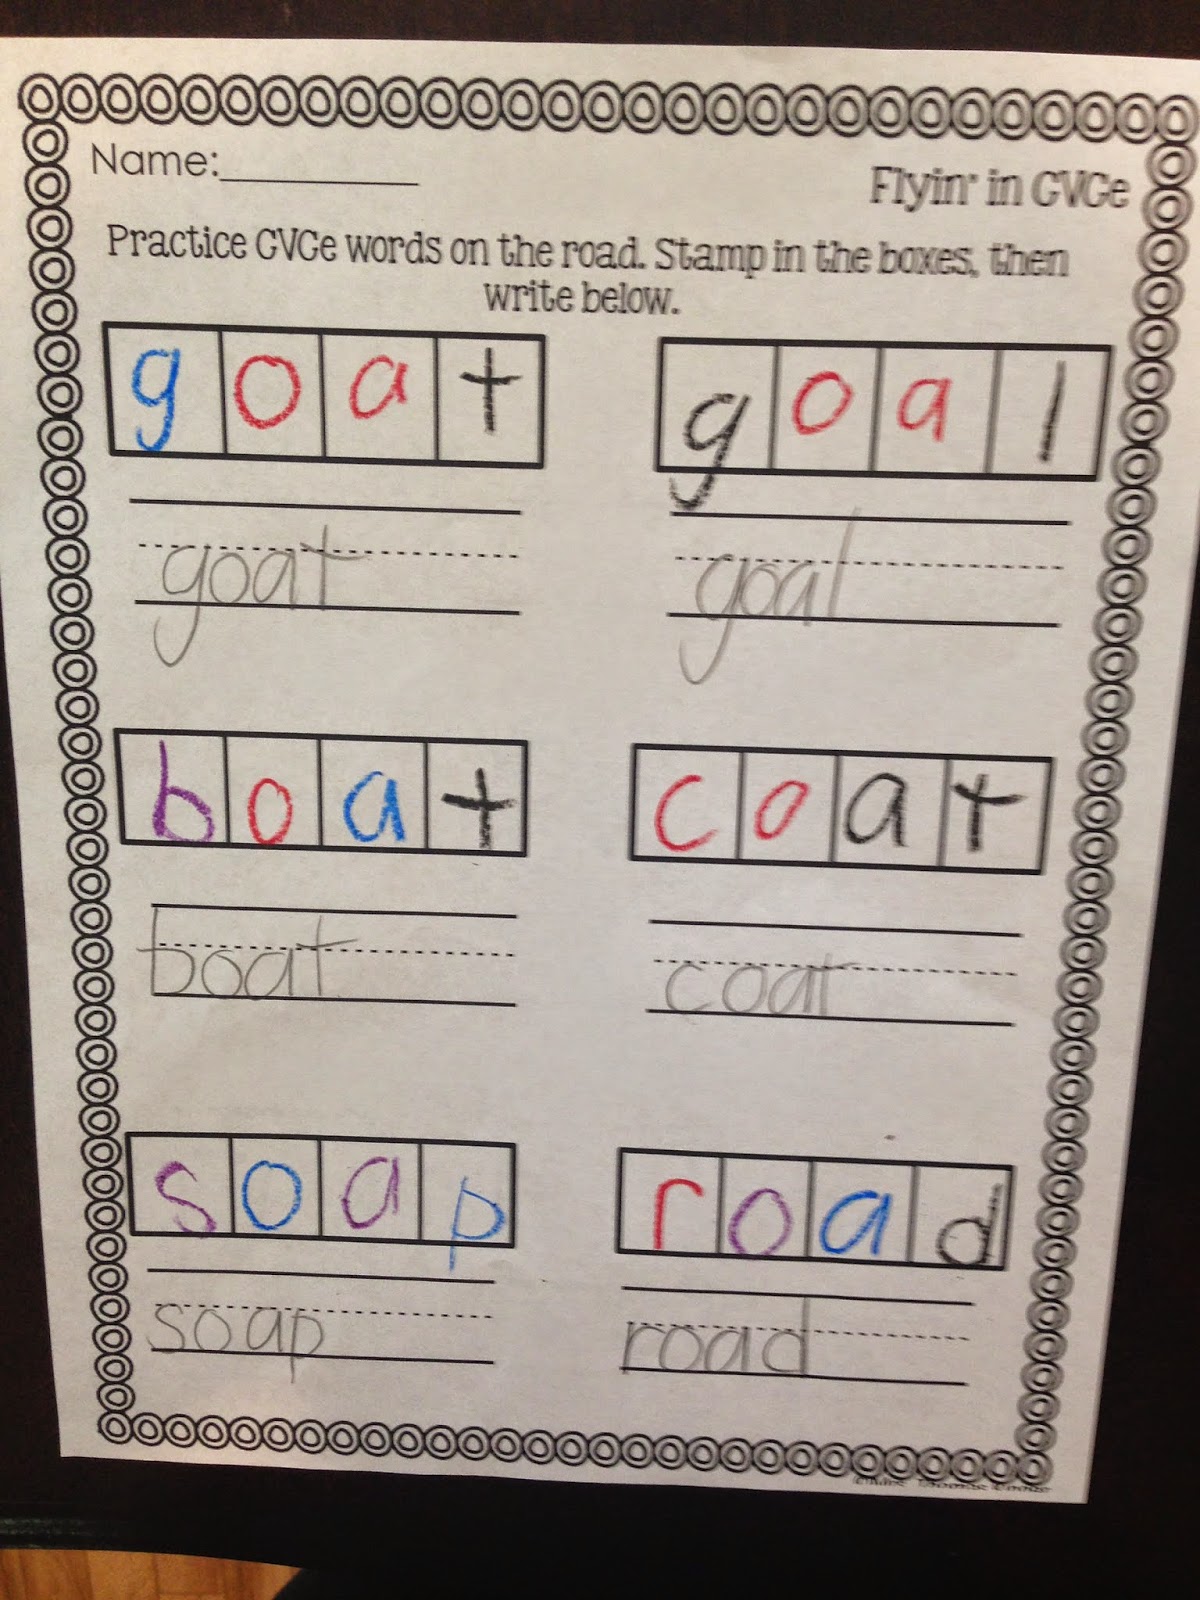 Name:
Flyin' in CVCe
Practice CVCe words on the road. Stamp in the boxes, then
write below.
goat goal
goat goal
boat coat
boat coat
soap road
soap road